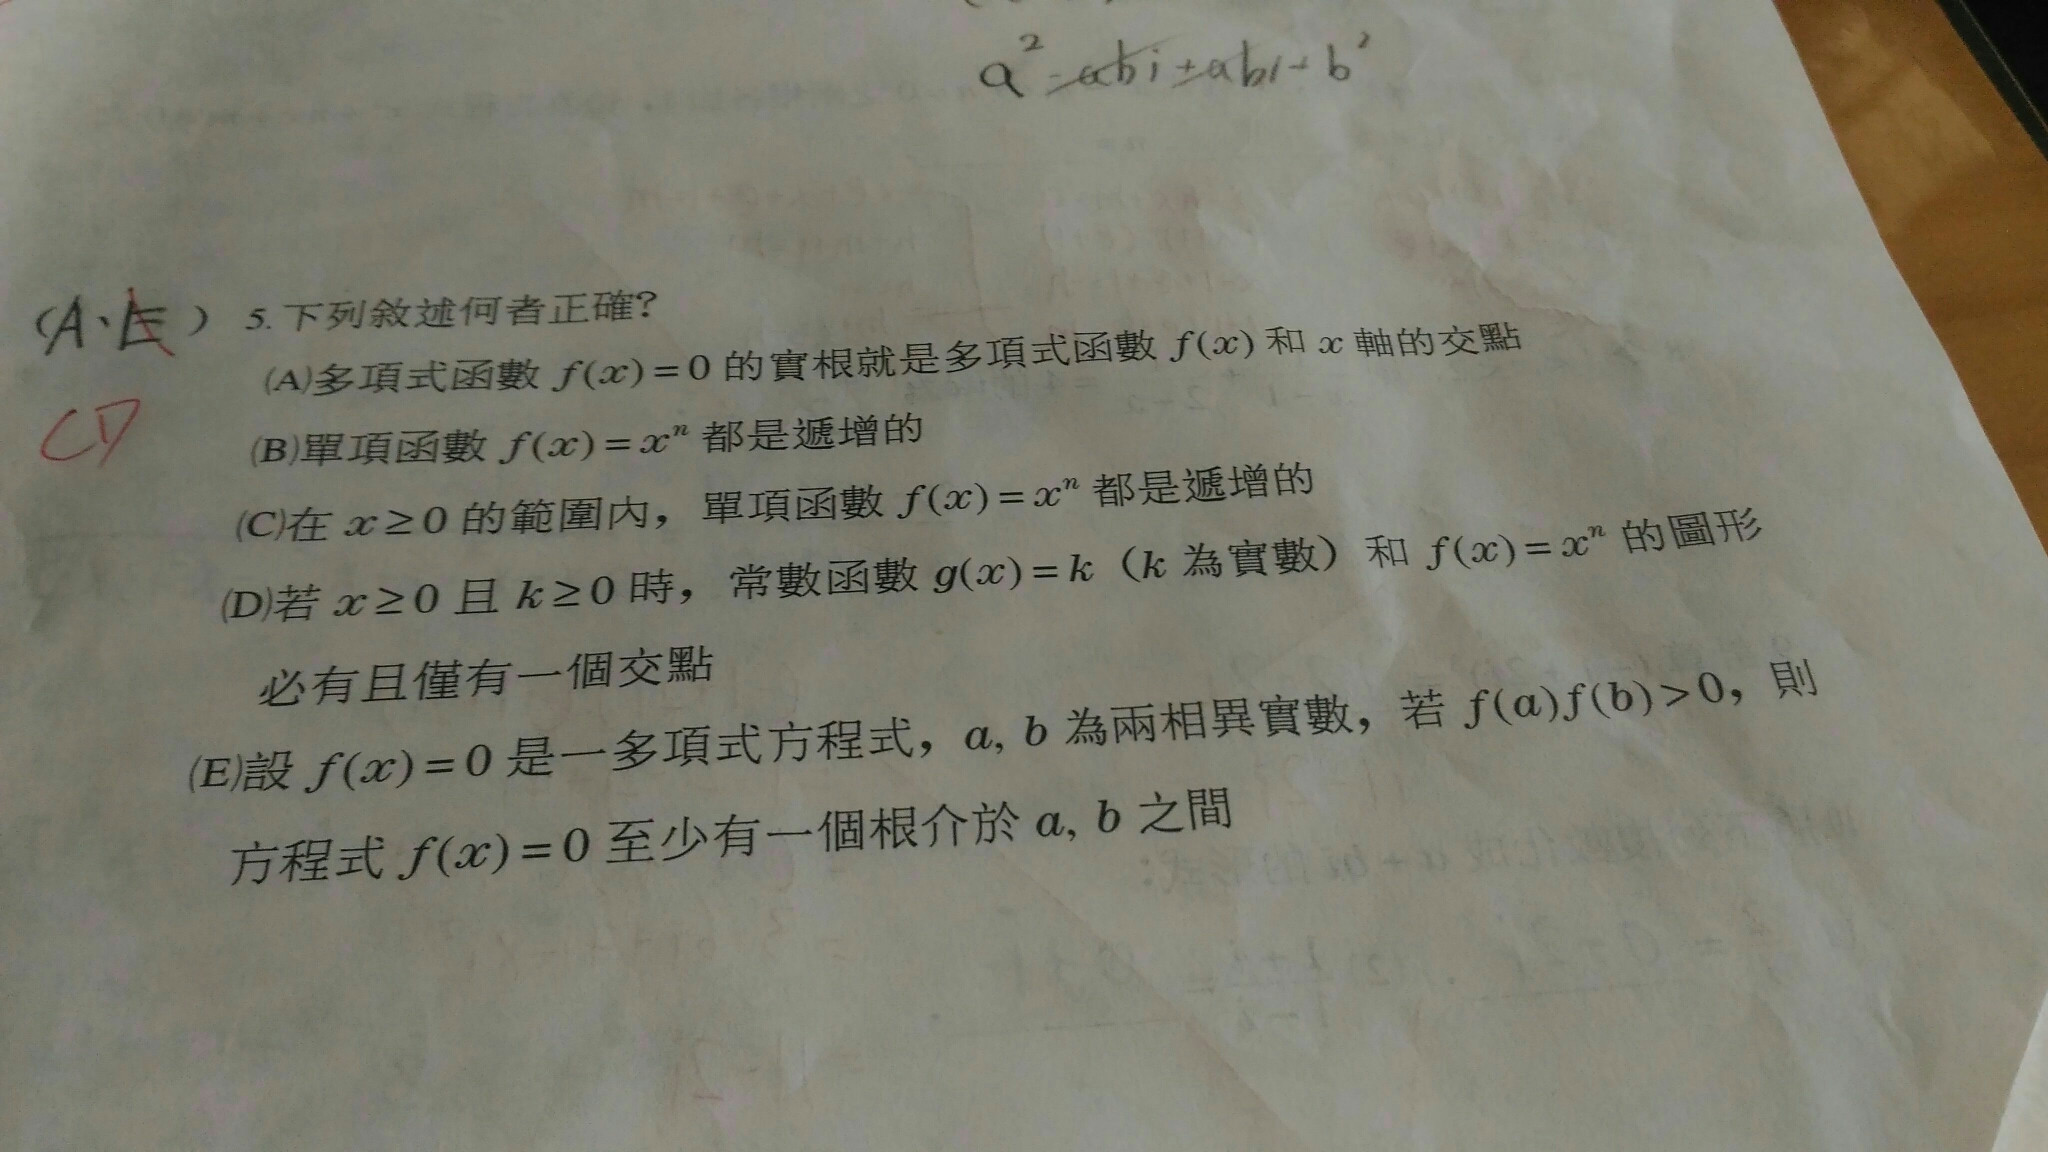 a² - abi + abi + b²
(A、E) 5. 下列敘述何者正確?
(A)多項式函數 f(x)=0 的實根就是多項式函數 f(x) 和 x 軸的交點
CD
(B)單項函數 f(x)=xⁿ 都是遞增的
(C)在 x≥0 的範圍內，單項函數 f(x)=xⁿ 都是遞增的
(D)若 x≥0 且 k≥0 時，常數函數 g(x)=k（k 為實數）和 f(x)=xⁿ 的圖形
必有且僅有一個交點
(E)設 f(x)=0 是一多項式方程式，a, b 為兩相異實數，若 f(a)f(b)>0，則
方程式 f(x)=0 至少有一個根介於 a, b 之間